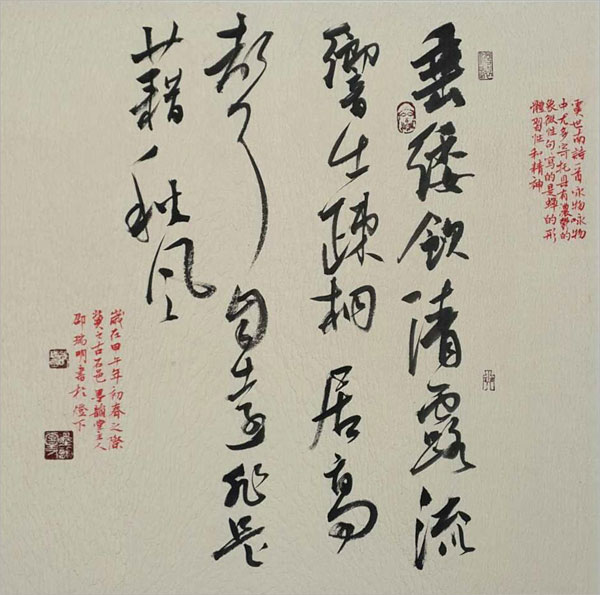 虞世南詩一首詠物詠物
中尤多寄托具有濃郁的
象徵性句句寫的是蟬的形
體習性和精神
垂緌飲清露流
響出疎桐居高
聲自遠非是
藉秋風
歲在甲午年初春之際
冀之古石邑墨韻堂主人
邵瑞明書於燈下